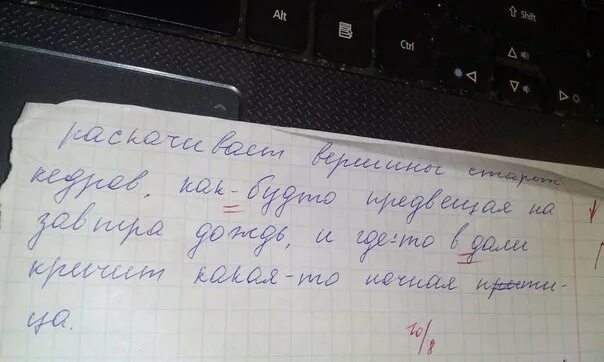 Alt
Shift
Ctrl
раскачивает вершины старых
кедров, как-будто предвещая на
завтра дождь, и где-то в дали
кричит какая-то ночная пти-
ца.
10/8